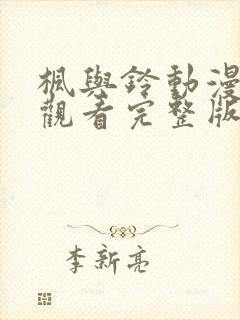 楓與鈴動漫
觀看完整版
李新亮